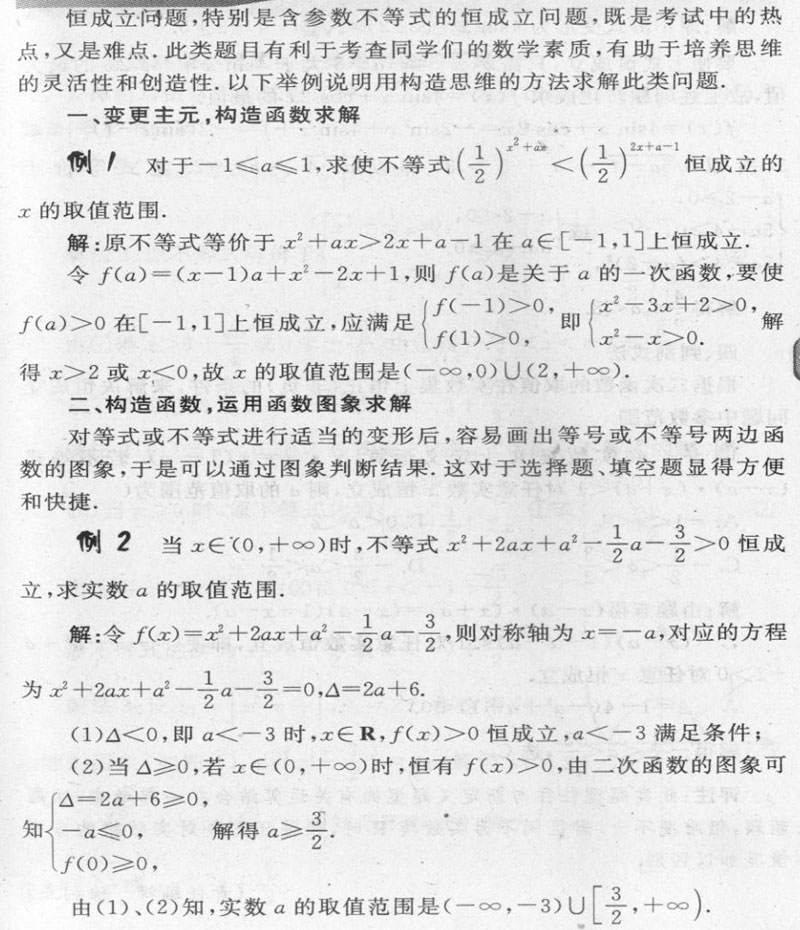 恒成立问题,特别是含参数不等式的恒成立问题,既是考试中的热
点,又是难点.此类题目有利于考查同学们的数学素质,有助于培养思维
的灵活性和创造性.以下举例说明用构造思维的方法求解此类问题.
一、变更主元,构造函数求解
例1 对于-1≤a≤1,求使不等式(1/2)^(x²+ax)<(1/2)^(2x+a-1)恒成立的
x的取值范围.
解:原不等式等价于x²+ax>2x+a-1在a∈[-1,1]上恒成立.
令f(a)=(x-1)a+x²-2x+1,则f(a)是关于a的一次函数,要使
f(a)>0在[-1,1]上恒成立,应满足{f(-1)>0, f(1)>0, 即{x²-3x+2>0, x²-x>0. 解
得x>2或x<0,故x的取值范围是(-∞,0)∪(2,+∞).
二、构造函数,运用函数图象求解
对等式或不等式进行适当的变形后,容易画出等号或不等号两边函
数的图象,于是可以通过图象判断结果.这对于选择题、填空题显得方便
和快捷.
例2 当x∈(0,+∞)时,不等式x²+2ax+a²-1/2a-3/2>0恒成
立,求实数a的取值范围.
解:令f(x)=x²+2ax+a²-1/2a-3/2,则对称轴为x=-a,对应的方程
为x²+2ax+a²-1/2a-3/2=0,Δ=2a+6.
(1)Δ<0,即a<-3时,x∈R,f(x)>0恒成立,a<-3满足条件;
(2)当Δ≥0,若x∈(0,+∞)时,恒有f(x)>0,由二次函数的图象可
知{Δ=2a+6≥0, -a≤0, f(0)≥0, 解得a≥3/2.
由(1)、(2)知,实数a的取值范围是(-∞,-3)∪[3/2,+∞).